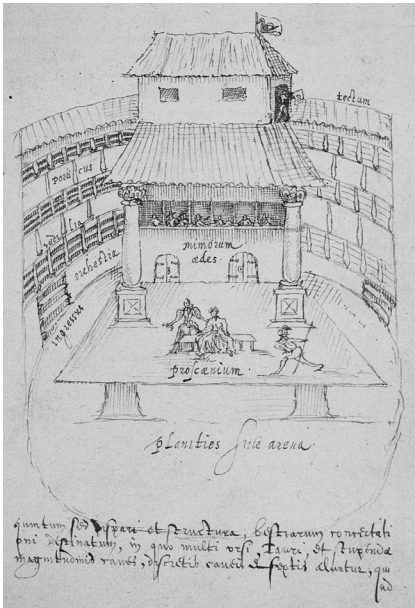 tectum
porticus
sedilia
orchestra
ingressus
mimorum
ædes.
proscænium.
planities siue arena.
quintum sed dispari et structura, bestiarum concertati
oni destinatum, in quo multi ursi, Tauri, et stupendæ
magnitudinis canes, discretis caueis & septis aluntur, qui
ad